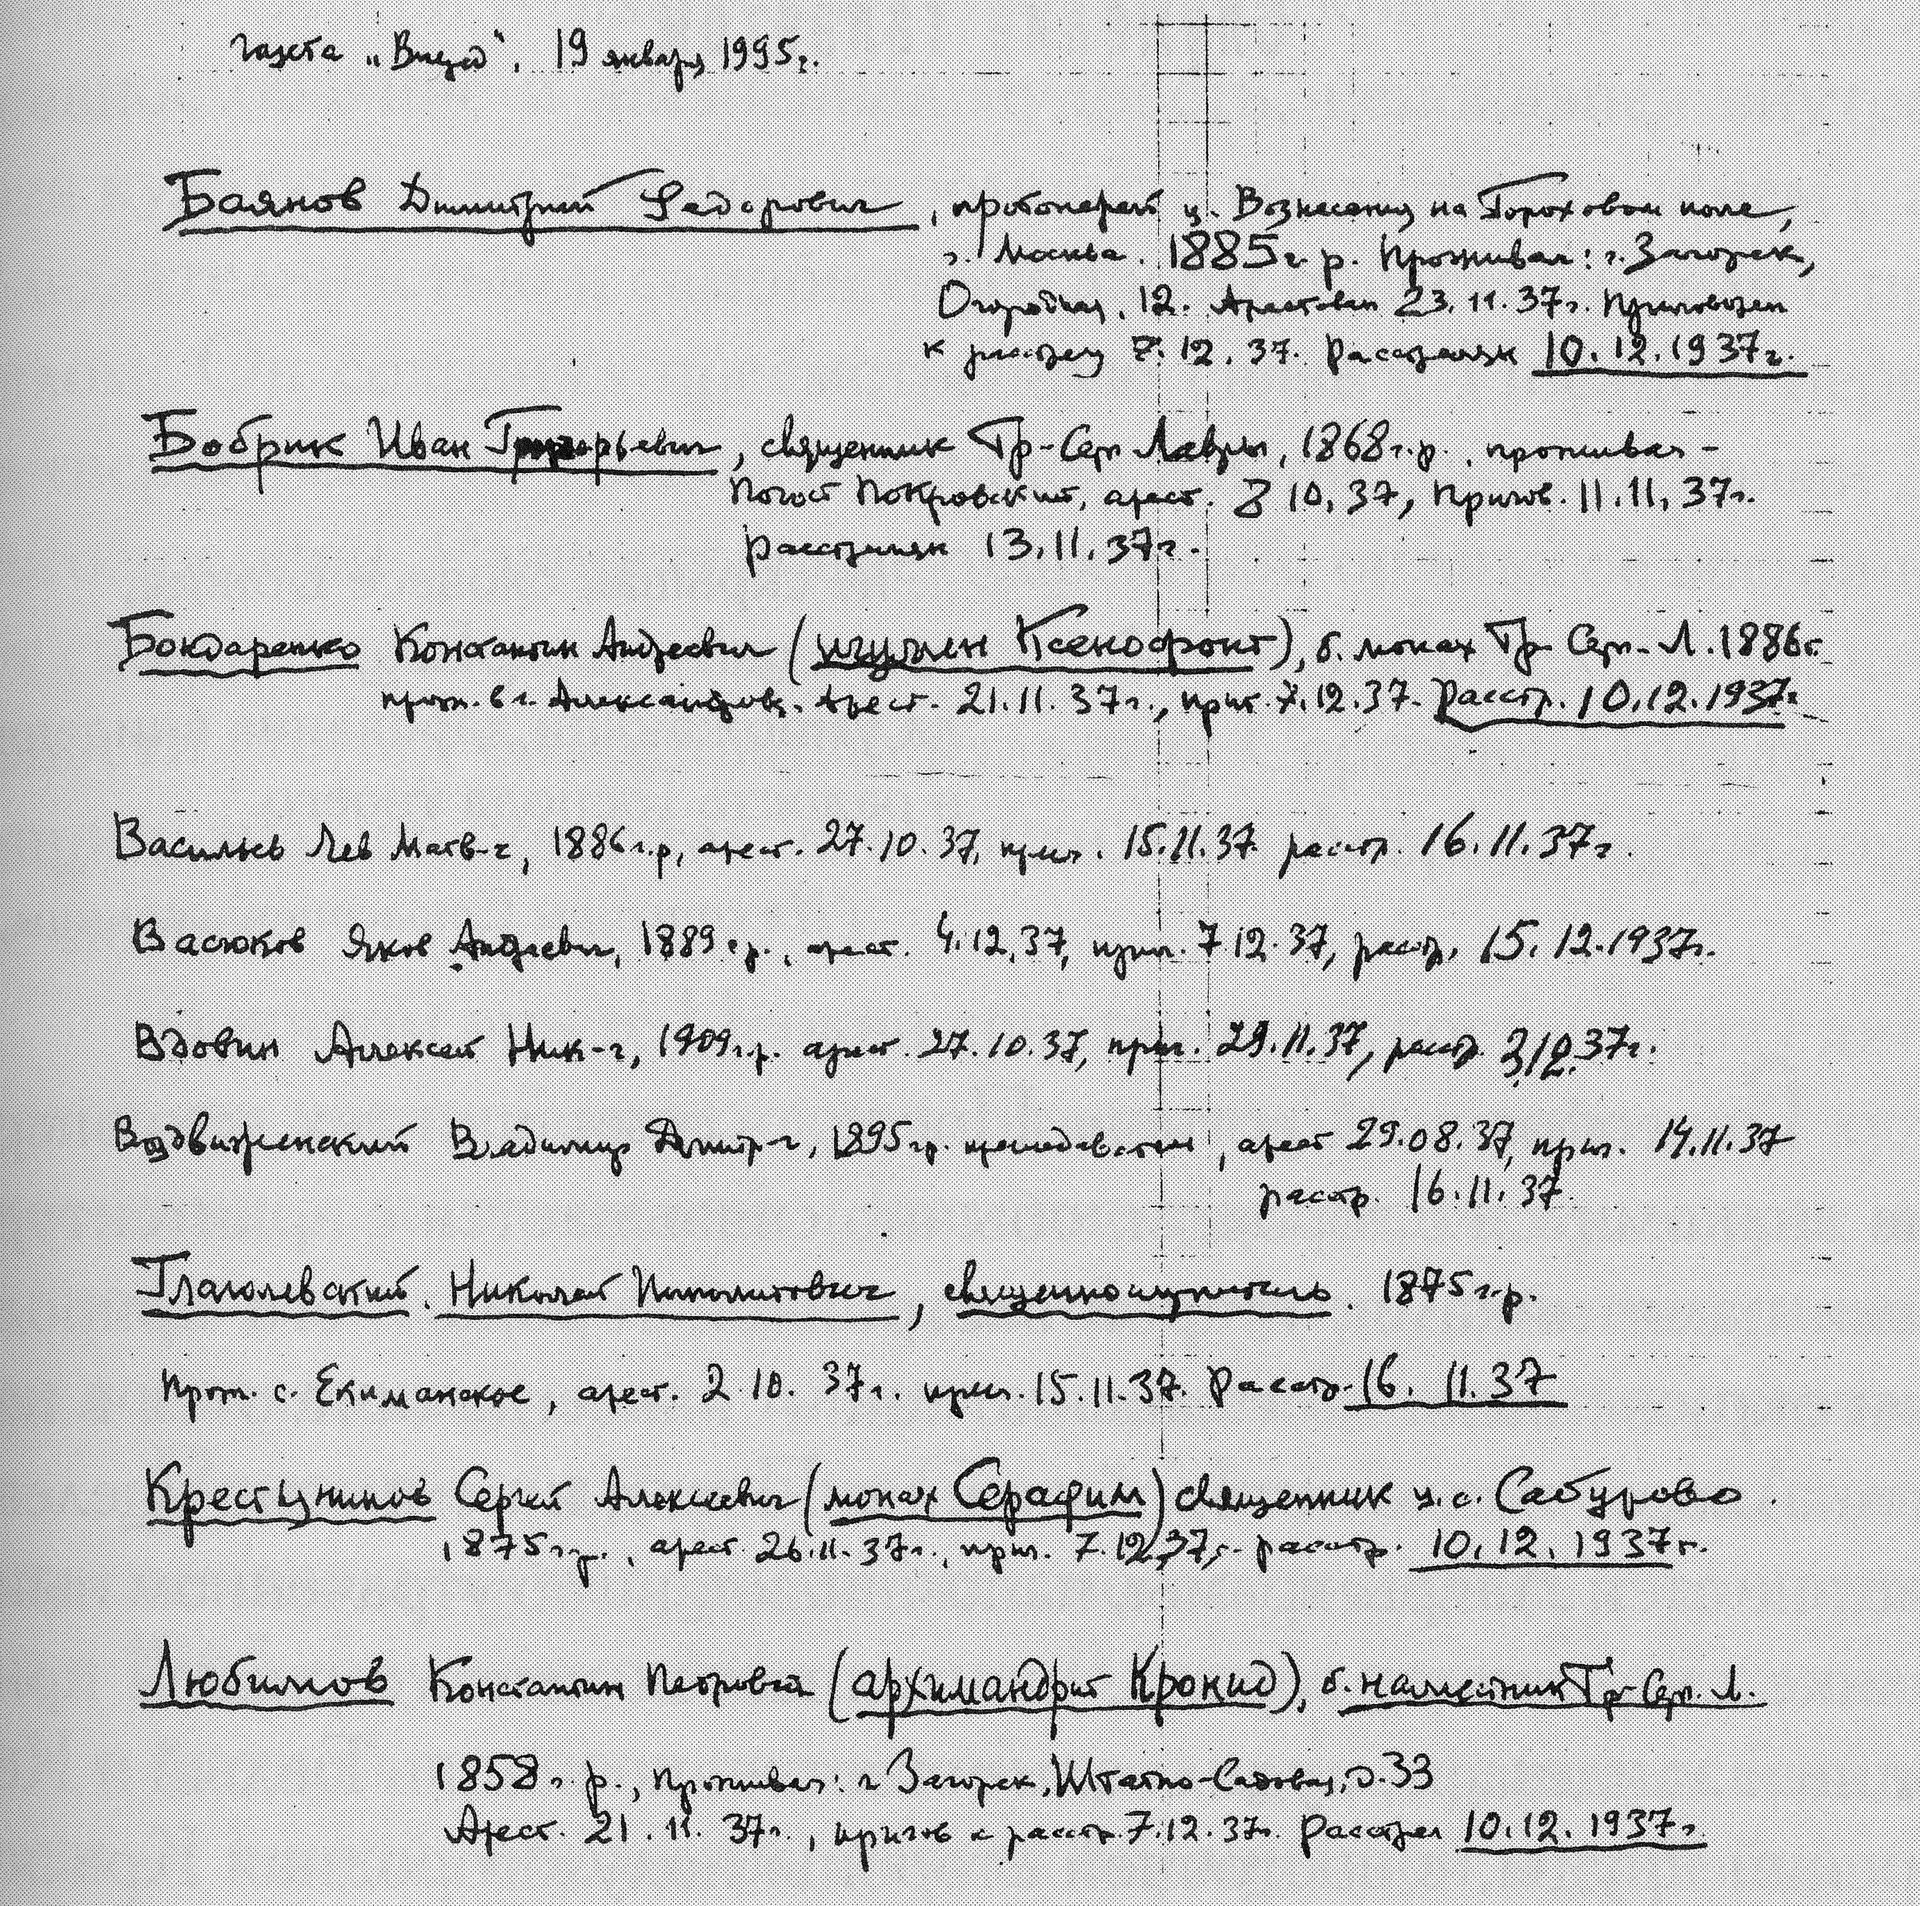 газета „Вперед“, 19 января 1995г.
Баянов Димитрий Федорович, протоиерей ц. Вознесения на Гороховом поле,
г. Москва. 1885 г. р. Проживал: г. Загорск,
Огородная, 12. Арестован 23.11.37г. Приговорен
к расстрелу 7.12.37. Расстрелян 10.12.1937г.
Бобрик Иван Григорьевич, священник Тр-Серг Лавры, 1868г.р., проживал -
Погост Покровский, арест. 8 10.37, Пригов. 11.11.37г.
Расстрелян 13.11.37г.
Бондаренко Константин Андреевич (игумен Ксенофонт), б. монах Тр Серг-Л. 1886г.
прож. в г. Александров. Арест. 21.11.37г., приг. 7.12.37. Расстр. 10.12.1937г
Васильев Лев Матв-ч, 1886г.р, арест. 27.10.37, приг. 15.11.37 расстр. 16.11.37г.
Васюков Яков Андреевич, 1889 г.р., арест. 4.12.37, приг. 7 12.37, расстр. 15.12.1937г.
Вдовин Алексей Ник-ч, 1909г.р. арест. 27.10.37, приг. 29.11.37, расстр. 3.12.37г.
Воздвиженский Владимир Дмитр-ч, 1895гр. преподаватель, арест 29.08.37, приг. 14.11.37
расстр. 16.11.37.
Глаголевский. Николай Ипполитович, священнослужитель. 1875г.р.
Прож. с. Екиманское, арест. 2.10.37г. приг. 15.11.37. Расстр. 16.11.37
Крестников Сергей Алексеевич (монах Серафим) священник ц. с. Сабурово.
1875г.р., арест 26.11.37г., приг. 7.12.37г. расстр. 10.12.1937г.
Любимов Константин Петрович (архимандрит Кронид), б. наместник Тр-Серг. Л.
1858 г. р., Проживал: г Загорск, Штатно-Садовая, д.33
Арест. 21.11.37г., пригов к расстр. 7.12.37г. Расстрел 10.12.1937г.